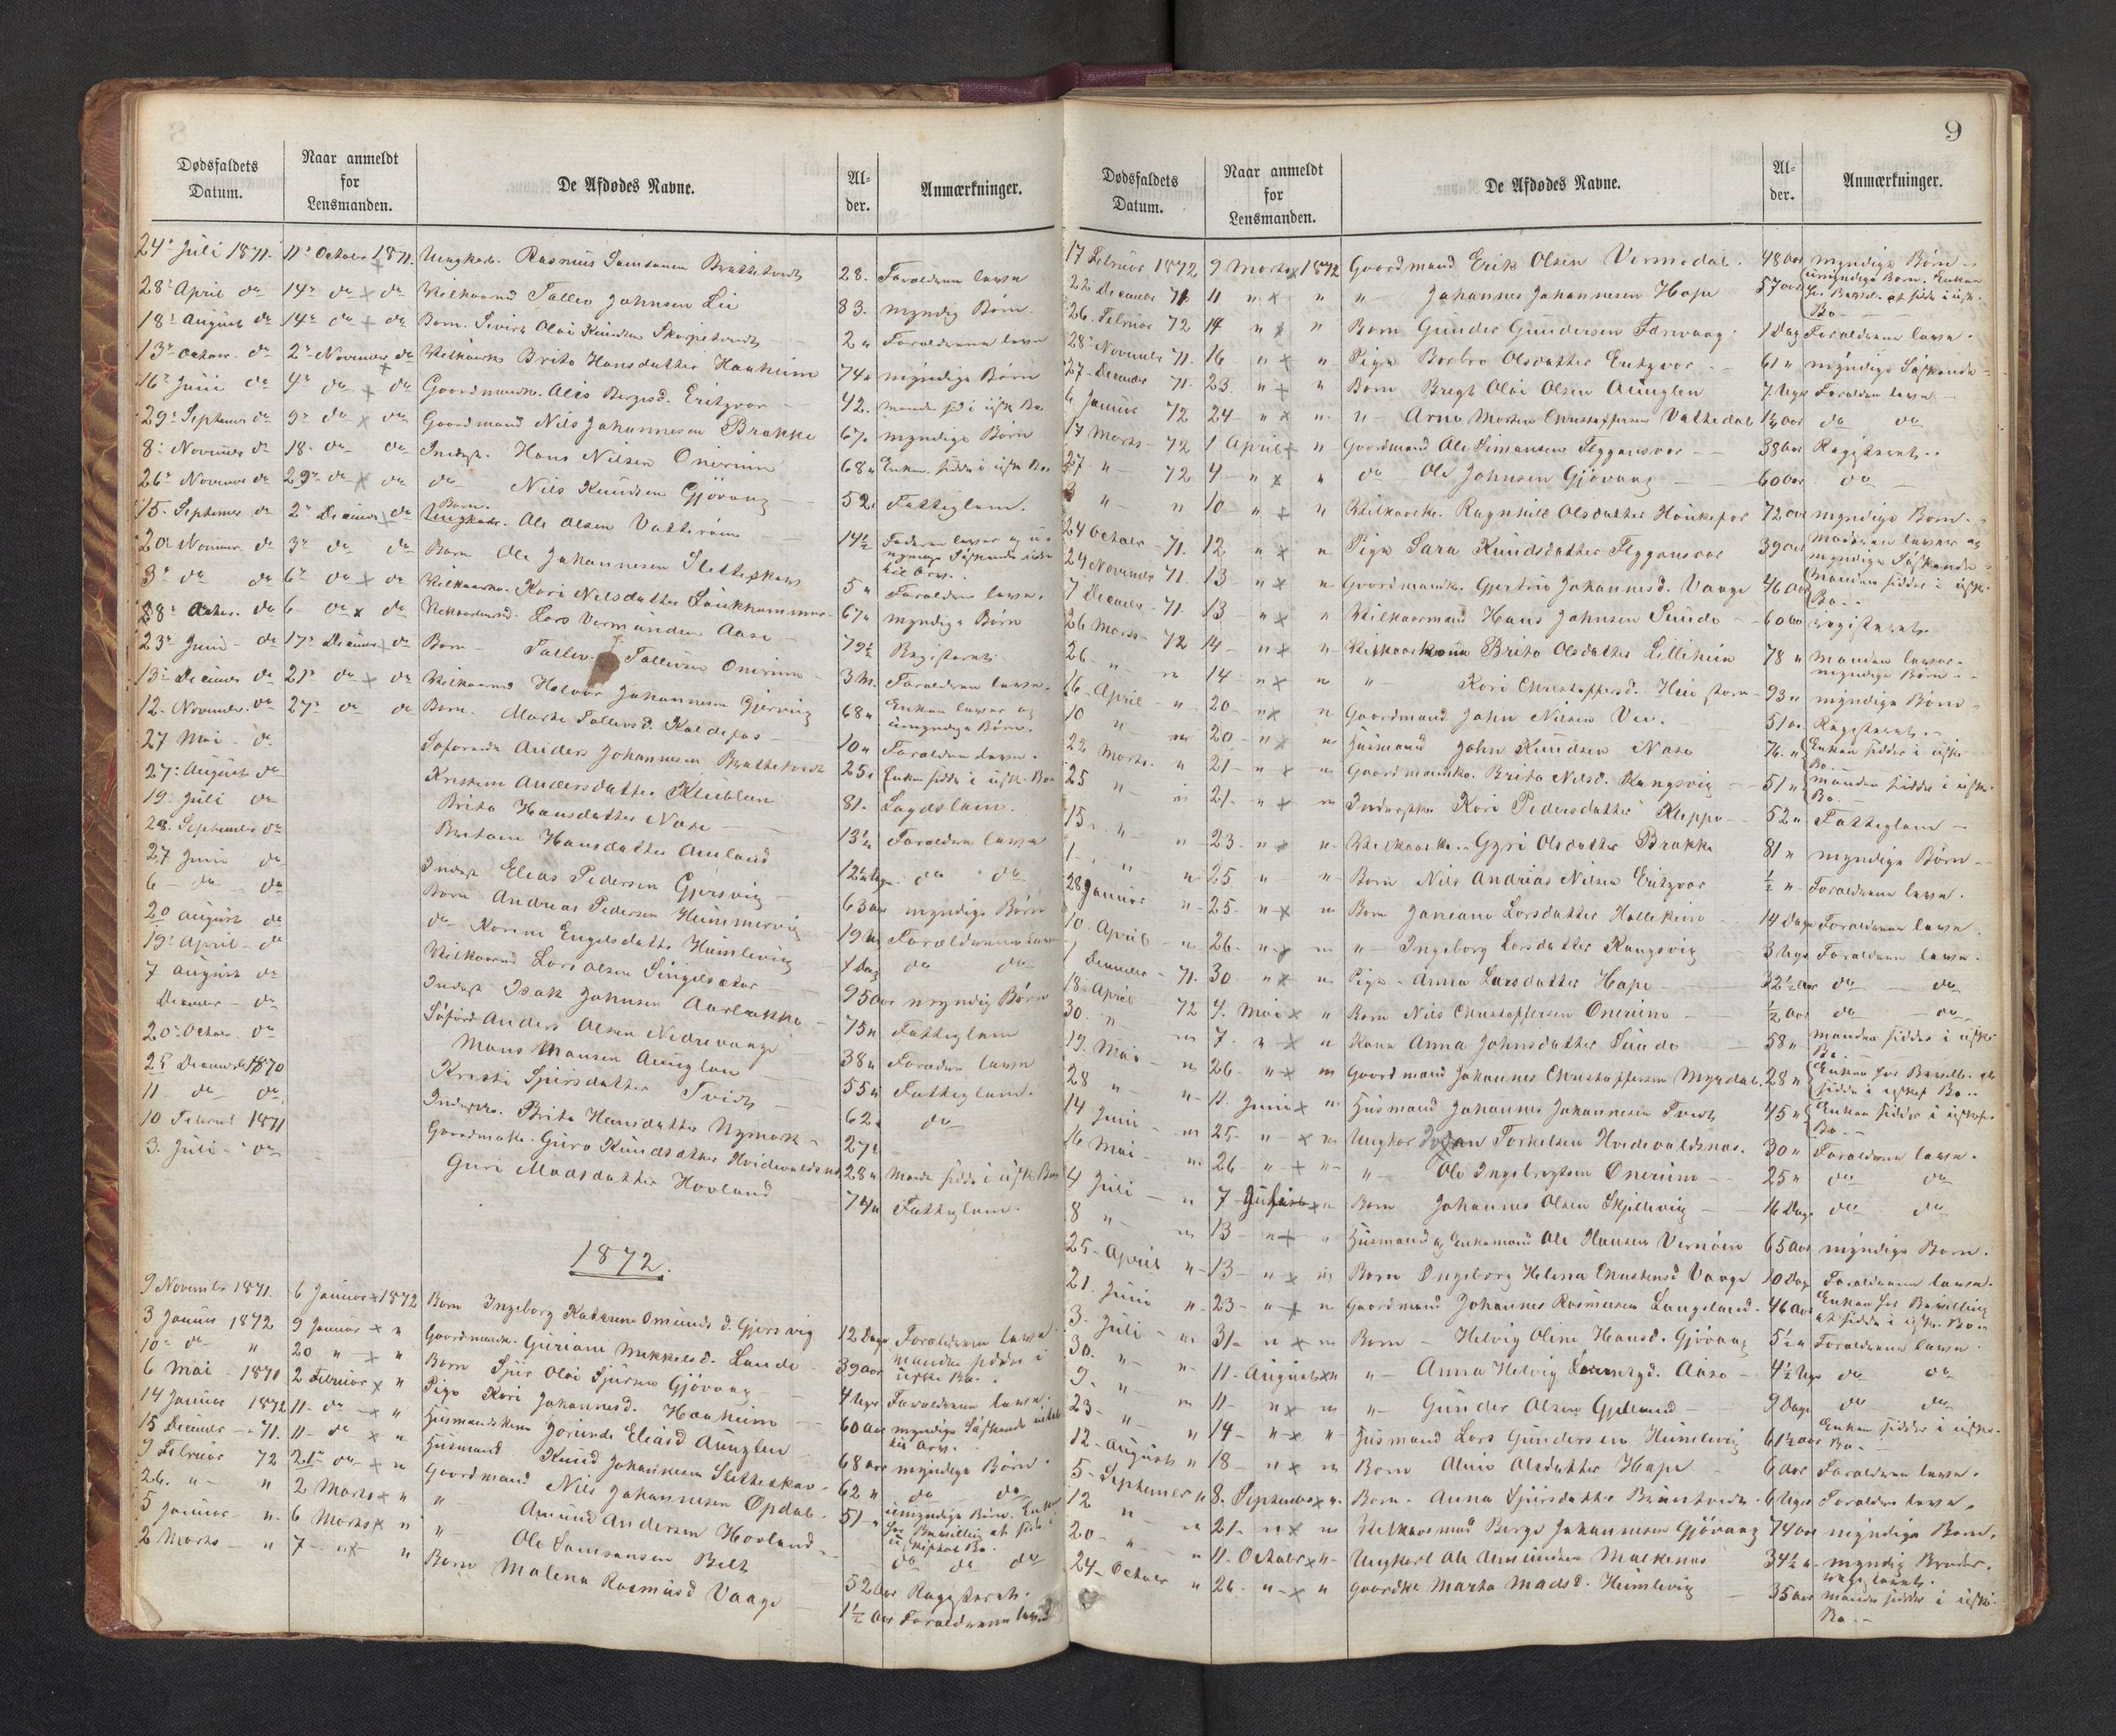 Dødsfaldets Datum. Naar anmeldt for Lensmanden. De Afdødes Navne. Alder. Anmærkninger.
24 Juli 1871. 11 October 1871. Ungkarl. Rasmus Samsonsen Brattetveit 28. Forældrene lever
28 April do 14 do do Vilkaarmd Tollev Johnsen Lie 83. myndig Børn.
18 August do 14 do do Barn. Sivert Olai Knudsen Skorpetveit 2 Forældrene lever
13 October do 2 November do Vilkaark. Brita Hansdatter Haaheim 74 myndige Børn
16 Juni do 4 do do Gaardmandk. Alis Børgesd. Eritzvær 42. Manden sid i uskft Bo.
29 September do 9 do do Gaardmand Nils Johannesen Brække 67. myndige Børn
8 November do 18. do do Inderst. Hans Nilsen Onerim 68 Enken sidder i uskft Bo.
26 November do 29 do do do Nils Knudsen Gjøvaag 52 Fattiglem.
15. September do 2 December do Barn. Ole Olsen Vatterøen 14½ Faderen lever og umyndige Søskende til Arv.
20 November do 3 do do Barn Ole Johannesen Sletteskar 5 Forældrene lever.
3 do do 6 do do Vilkaarke. Kari Nilsdatter Laukhammer 67 myndige Børn
28 October do 6 do do Vilkaarsmd. Lars Vermundsen Aase 79½ Registeret
23 Juni do 17 December do Barn Tollev Tollevsen Onerim 3 M. Forældrene lever.
13 December do 21 do do Vilkaarmd Halvor Johannesen Gjersvig 68 Enken lever og umyndige Børn.
12. November do 27 do do Barn. Marta Tollevsd. Koldefos 10 Forældrene lever.
27 Mai do Søfarende Anders Johannesen Brattetveit 25 Enken sidder i uskft. Bo
27 August do Kristense Andersdatter Kleiblien 81. Lægdslem.
19 Juli do Brita Hansdatter Næse 13½ Forældrene lever
28. September do Bertine Hansdatter Amland 12 Uger do do
27 Juni do Inderst Elias Pedersen Gjersvig 63 aar myndige Børn
6 do do Barn Andreas Pedersen Hummervig 19 Forældrene lever
20 August do do Korine Engelsdatter Humlevig 1 Dag do do
19 April do Vilkaarmd Lars Olsen Singelsæter 95 Aar myndig Børn
7 August do Inderst Isak Johnsen Aarbakke 75 Fattiglem
December do Søfard Anders Olsen Nedrevaage 38 Forældre lever
20 October do Mons Monsen Aunglen 55 Fattiglem.
25 December 1870 Kristi Sjursdatter Tveit 62. do
11 do do Inderstke. Brita Hansdatter Nymark 27½
10 Februar 1871 Gaardmdk. Guro Knudsdatter Hvidevoldsnæs 28 Manden sidder i uskft Bo
3. Juli do Guri Madsdatter Hovland 74 Fattiglem.
1872.
9 November 1871. 6 Januar 1872 Barn Ingeborg Katrine Omundsd. Gjersvig 12 Dage Forældrene lever
3 Januar 1872 9 Januar " Gaardmandk. Guriane Mikkelsd. Lande 39 aar Manden sidder i uskft Bo.
10 do " 20 " " Barn Sjur Olai Sjursen Gjøvaag 4 Uger Forældrene lever.
6 Mai 1871 2 Februar " Pige Kari Johannesd. Haaheim 60 Aar myndige Søskende til Arv.
14 Januar 1872 11 do " Husmandskone Jorinde Eliasd Aunglen 68 aar myndige Børn.
15 December 71. 11 do " Husmand Knud Johannesen Sletteskar 62 " do do
9 Februar 72 21 do " Gaardmand Nils Johannesen Opdal 51 umyndige Børn. Enken har Bevilling at sidde i uskiftet Bo.
26. " " 2 Marts " " Amund Andersen Hovland do do do
5 Januar " 6 Marts " " Ole Samsonsen Belt 52 Aar Registeret.
2 Marts " 7 " " Barn Malena Rasmusd Vaage 1½ Aar Forældrene lever
9
Dødsfaldets Datum. Naar anmeldt for Lensmanden. De Afdødes Navne. Alder. Anmærkninger.
17 Februar 1872 9 Marts 1872 Gaardmand Erik Olsen Vermedal. 48 Aar myndige Børn
22 December 71 11 " " " Johannes Johannesen Hope 57 aar umyndige Børn. Enken har Bevill. at sidde i uskft. Bo
26. Februar 72 14 " " Barn Gunder Gundersen Færevaag 1 Dag Forældrene lever.
28 November 71. 16 " " Pige Barbro Olsdatter Eritzvær 61 " myndige Søskende
27 December 71. 23 " " Barn Bregt Olai Olsen Aunglen 7 Uger Forældrene lever
6 Januar 72 24 " " " Arne Morten Christoffersen Vattedal 1½ Aar do do
17 Marts 72 1 April " Gaardmand Ole Simonsen Fleggansvær 38 Aar Registeret
27 " 72 4 " " do Ole Johnsen Gjøvaag 60 Aar do
3 " " 10 " " Vilkaarke. Ragnhild Olsdatter Haukefær 72 Aar myndige Børn.
24 October 71. 12 " " Pige Sara Knudsdatter Fleggansvær 39 aar Moderen lever og myndige Søskende
24 November 71. 13 " " Gaardmandk. Gjertrud Johannesd. Vaage 46 Aar Manden sidder i uskft. Bo.
7 December 71. 13 " " Vilkaarmand Hans Johnsen Sunde 60 Aar registeret
26 Marts 72 14 " " Vilkaarkone Brita Olsdatter Lilleheim 78 " Manden lever. myndige Børn
26 " " 14 " " " Kari Christoffersd. 93 " myndige Børn
16 April " 20 " " Gaardmand John Nilsen Vee. 51 Aar Registeret
10 " " 20 " " Husmand John Knudsen Næse 76. " Enken sidder i uskft Bo.
22 Marts " 21 " " Gaardmandsk. Brita Nilsd. Kungsvig 51 " Manden sidder i uskft. Bo
25 " " 21. " " Inderstke Kari Pedersdatter Kleppe 52 " Fattiglem
15. " " 23. " " Vilkaarke. Gyri Olsdatter Brække 81 " myndige Børn
1. " " 25 " " Barn Nils Andrias Nilsen Eritzvær ½ " Forældrene lever.
28 Januar " 25 " " Barn Jansine Larsdatter Hallekeim 14 Dage Forældrene lever.
10. April " 26. " " " Ingeborg Larsdatter Kungsvig 3 Uger Forældrene lever.
1 December 71. 30 " " Pige Anna Larsdatter Hope 32½ Aar do do
18 April 72 4. Mai " Barn Nils Christoffersen Onerim ½ Aar do do
30. " " 7. " " Kone Anna Johnsdatter Sunde 58 " Manden sidder i uskft Bo.
19. Mai " 26 " " Gaardmand Johannes Christoffersen Myrdal. 28 " Enken har Bevill. at sidde i uskft Bo.
28 " " 11. Juni " Husmand Johannes Johannesen Tveit 45 " Enken sidder i uskft. Bo.
14 Juni " 25 " " Ungkar Johan Torkelsen Hvidevoldsnæs. 30 " Forældrene lever.
16 Mai " 26 " " " Ole Ingebrigtsen Onerim 25 " do do
4 Juli " 7 Juli " Barn Johannes Olsen Skjellevig 16 Dage do do
8 " " 13 " " Husmand og Enkemand Ole Hansen Vernøen 65 Aar myndige Børn.
25 April " 13 " " Barn Ingeborg Helena Christensd Vaage 10 Dage Forældrene lever.
21. Juni " 23 " " Gaardmand Johannes Rasmusen Langeland. 46 Aar Enken har Bevilling at sidde i uskft. Bo
3. Juli " 31 " " Barn Helvig Oline Hansd. Gjøvaag 5½ " Forældrene lever
30. " " 11 August " " Anna Helvig Aase 4½ Uge do do
9. " " 11 " " " Gunder Olsen Gjelland 9 Dage do do
23 " " 14 " " Husmand Lars Gundersen Humlevig 61½ aar Enken sidder i uskft. Bo.
12 August " 18 " " Barn Oline Olsdatter Hope 6 Aar Forældrene lever.
5 September " 8. September " Barn. Anna Sjursdatter Brandtveit 6 Uger Forældre lever.
12 " " 21 " " Vilkaarmand Børge Johannesen Gjøvaag 74 Aar myndige Børn.
20 " " 11 October " Ungkarl Ole Amundsen Malkenes 34½ a. myndig Broder. registeret.
24 October " 26. " " Gaardk. Marta Madsd. Humlevig 35 Aar Manden sidder i uskft. Bo.